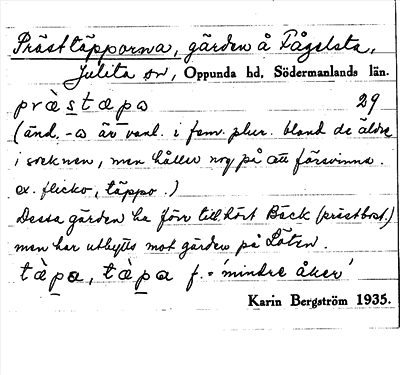 Prästtäpporna, gärden å Fågelsta,
Julita sn, Oppunda hd, Södermanlands län.
præstæpɷ 29
(änd. -ɷ är vanl. i fem. plur. bland de äldre
i socknen, men håller nog på att försvinna.
ex. flicko, täppo.)
Dessa gärden ha förr tillhört Bäck (prästbost.)
men har utbytts mot gärden på Löten.
tæ̀pɑ, tæ̀pa f. = 'mindre åker'
Karin Bergström 1935.